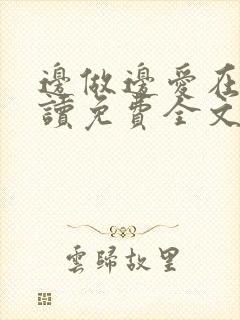 邊做邊愛在
讀免費全文
雲歸故里